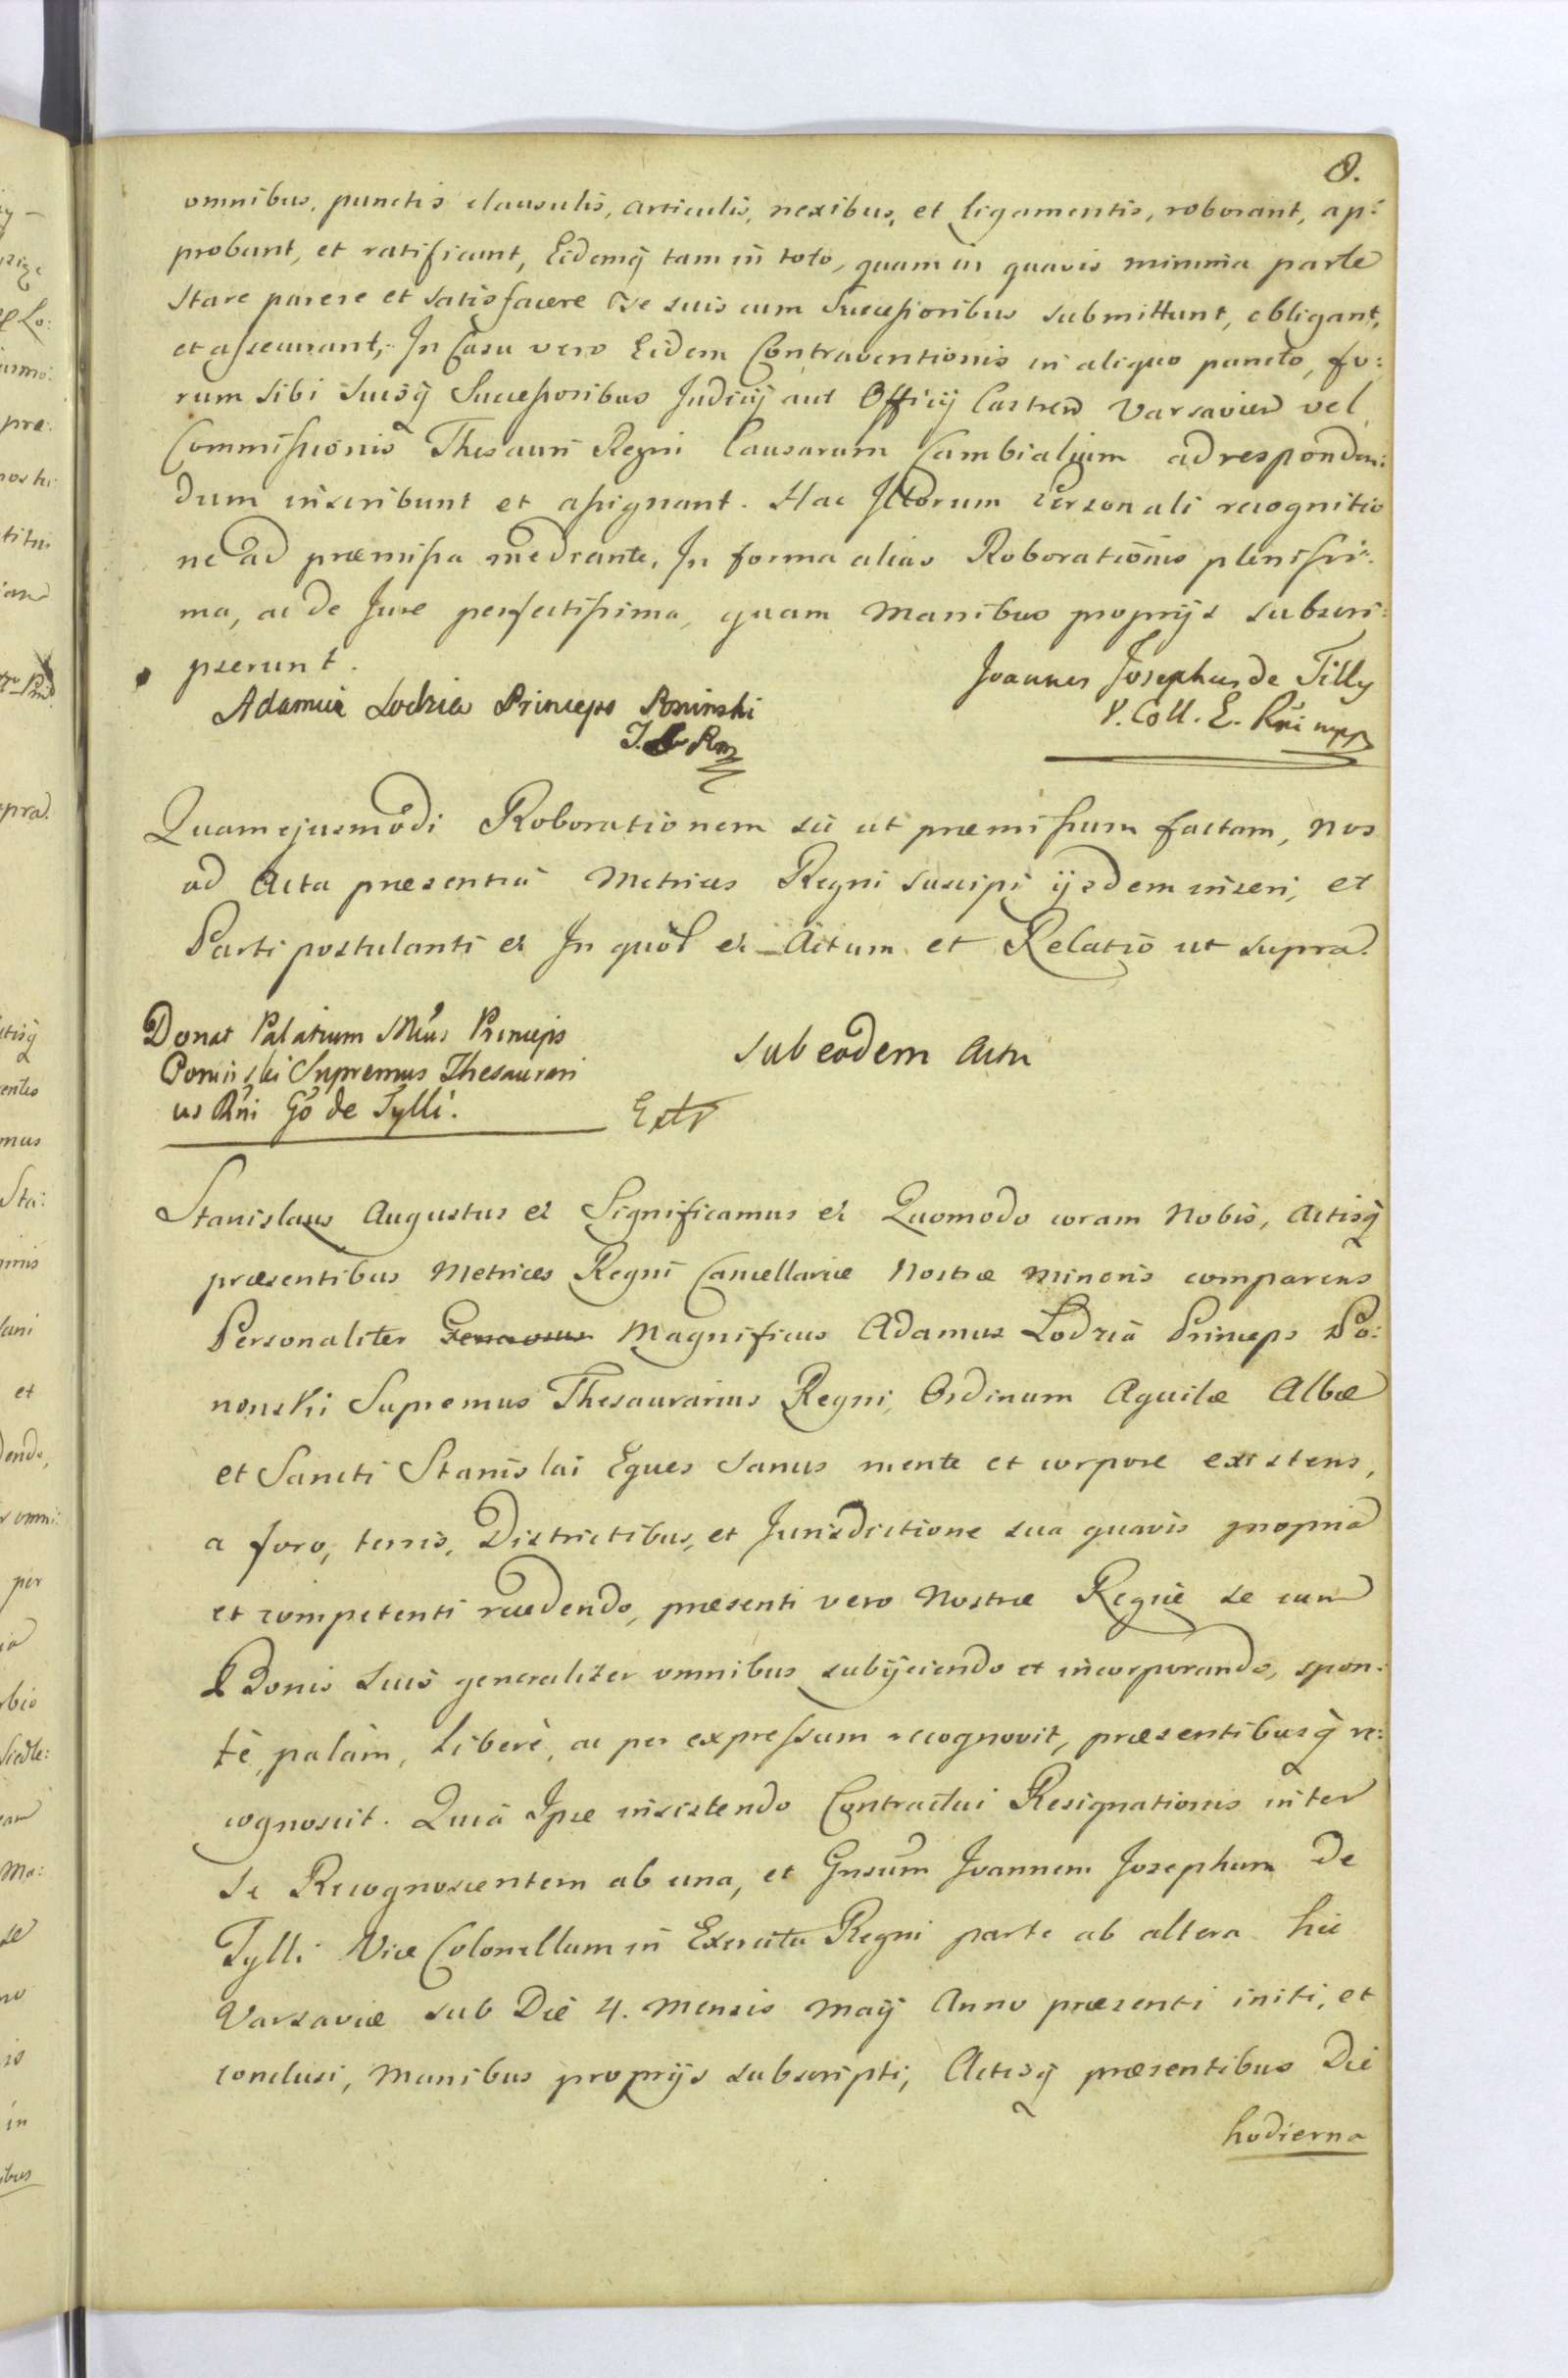 8.
omnibus, punctis clausulis, articulis, nexibus, et ligamentis, roborant, ap:
probant, et ratificant, Eidemq̃ tam in toto, quam in quavis minima parte
stare parere et satisfacere se suis cum Successoribus submittunt, obligant,
et assecurant, In Casu vero Eidem Contraventionis in aliquo puncto, fo:
rum sibi suisq̃ Successoribus Judicij aut Officij Castren Varsavien vel
Commissionis Thesauri Regni Causarum Cambialium ad responden:
dum inscribunt et assignant. Hac Illorum Personali recognitio
ne ad præmissa mediante, In forma alias Roborationis plenissi:
ma, ac de Jure perfectissima, quam Manibus proprijs subscri:
pserunt.
Joannes Josephus de Tilly
V. Coll. E. Rni mpp
Adamus Lodzia Princeps Poninski
Quam ejusmodi Roborationem sic ut præmissum factam, nos
ad Acta præsentia Metrices Regni suscipi ijsdem inseri, et
Parti postulanti ec In quor ec Actum et Relatio ut supra.
Donat Palatium Mus Princeps
Poninski Supremus Thesaurari
us Rni Go de Tylli.
Extr
sub eodem Actu
Stanislaus Augustus ec Significamus ec Quomodo coram Nobis, Actisq̃
præsentibus Metrices Regni Cancellariæ Nostræ Minoris comparens
Personaliter Generosus Magnificus Adamus Lodzia Princeps Po:
nonski Supremus Thesaurarius Regni, Ordinum Aquilæ Albæ
et Sancti Stanislai Eques sanus mente et corpore existens,
a foro, terris, Districtibus, et Jurisdictione sua quavis propria
et competenti recedendo, præsenti vero Nostræ Regiæ se cum
Bonis suis generaliter omnibus subijciendo et incorporando, spon:
tè, palàm, Liberè, ac per expressum recognovit, præsentibusq̃ re:
cognoscit. Quia Ipse insistendo Contractui Resignationis inter
se Recognoscentem ab una, et Gnsum Joannem Josephum De
Tylli Vice Colonellum in Exercitu Regni parte ab altera hic
Varsaviæ sub Die 4. Mensis Maij Anno præsenti initi, et
conclusi, Manibus proprijs subscripti, Actisq̃ præsentibus Die
hodierna